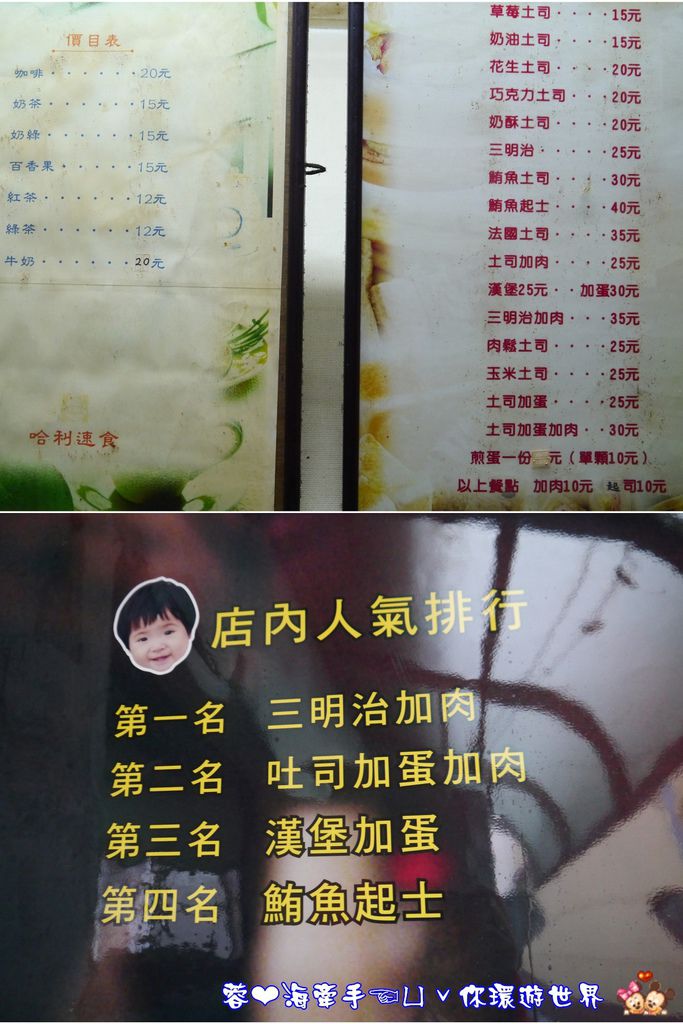 價目表
咖啡······20元
奶茶······15元
奶綠······15元
百香果·····15元
紅茶······12元
綠茶······12元
牛奶······20元
哈利速食
草莓土司····15元
奶油土司····15元
花生土司····20元
巧克力土司···20元
奶酥土司····20元
三明治·····25元
鮪魚土司····30元
鮪魚起士····40元
法國土司····35元
土司加肉····25元
漢堡25元··加蛋30元
三明治加肉···35元
肉鬆土司····25元
玉米土司····25元
土司加蛋····25元
土司加蛋加肉··30元
煎蛋一份 元(單顆10元)
以上餐點 加肉10元 起司10元
店內人氣排行
第一名 三明治加肉
第二名 吐司加蛋加肉
第三名 漢堡加蛋
第四名 鮪魚起士
蓉❤海牽手☜ㄩˇ你環遊世界